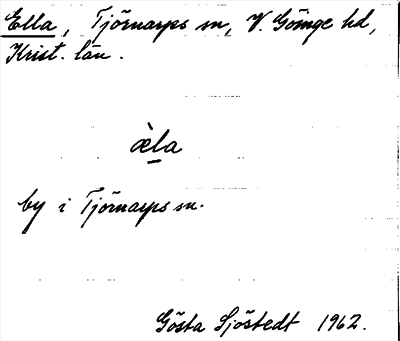 Ella, Tjörnarps sn, V. Göinge hd,
Krist. län.
æ̀la
by i Tjörnarps sn.
Gösta Sjöstedt 1962.